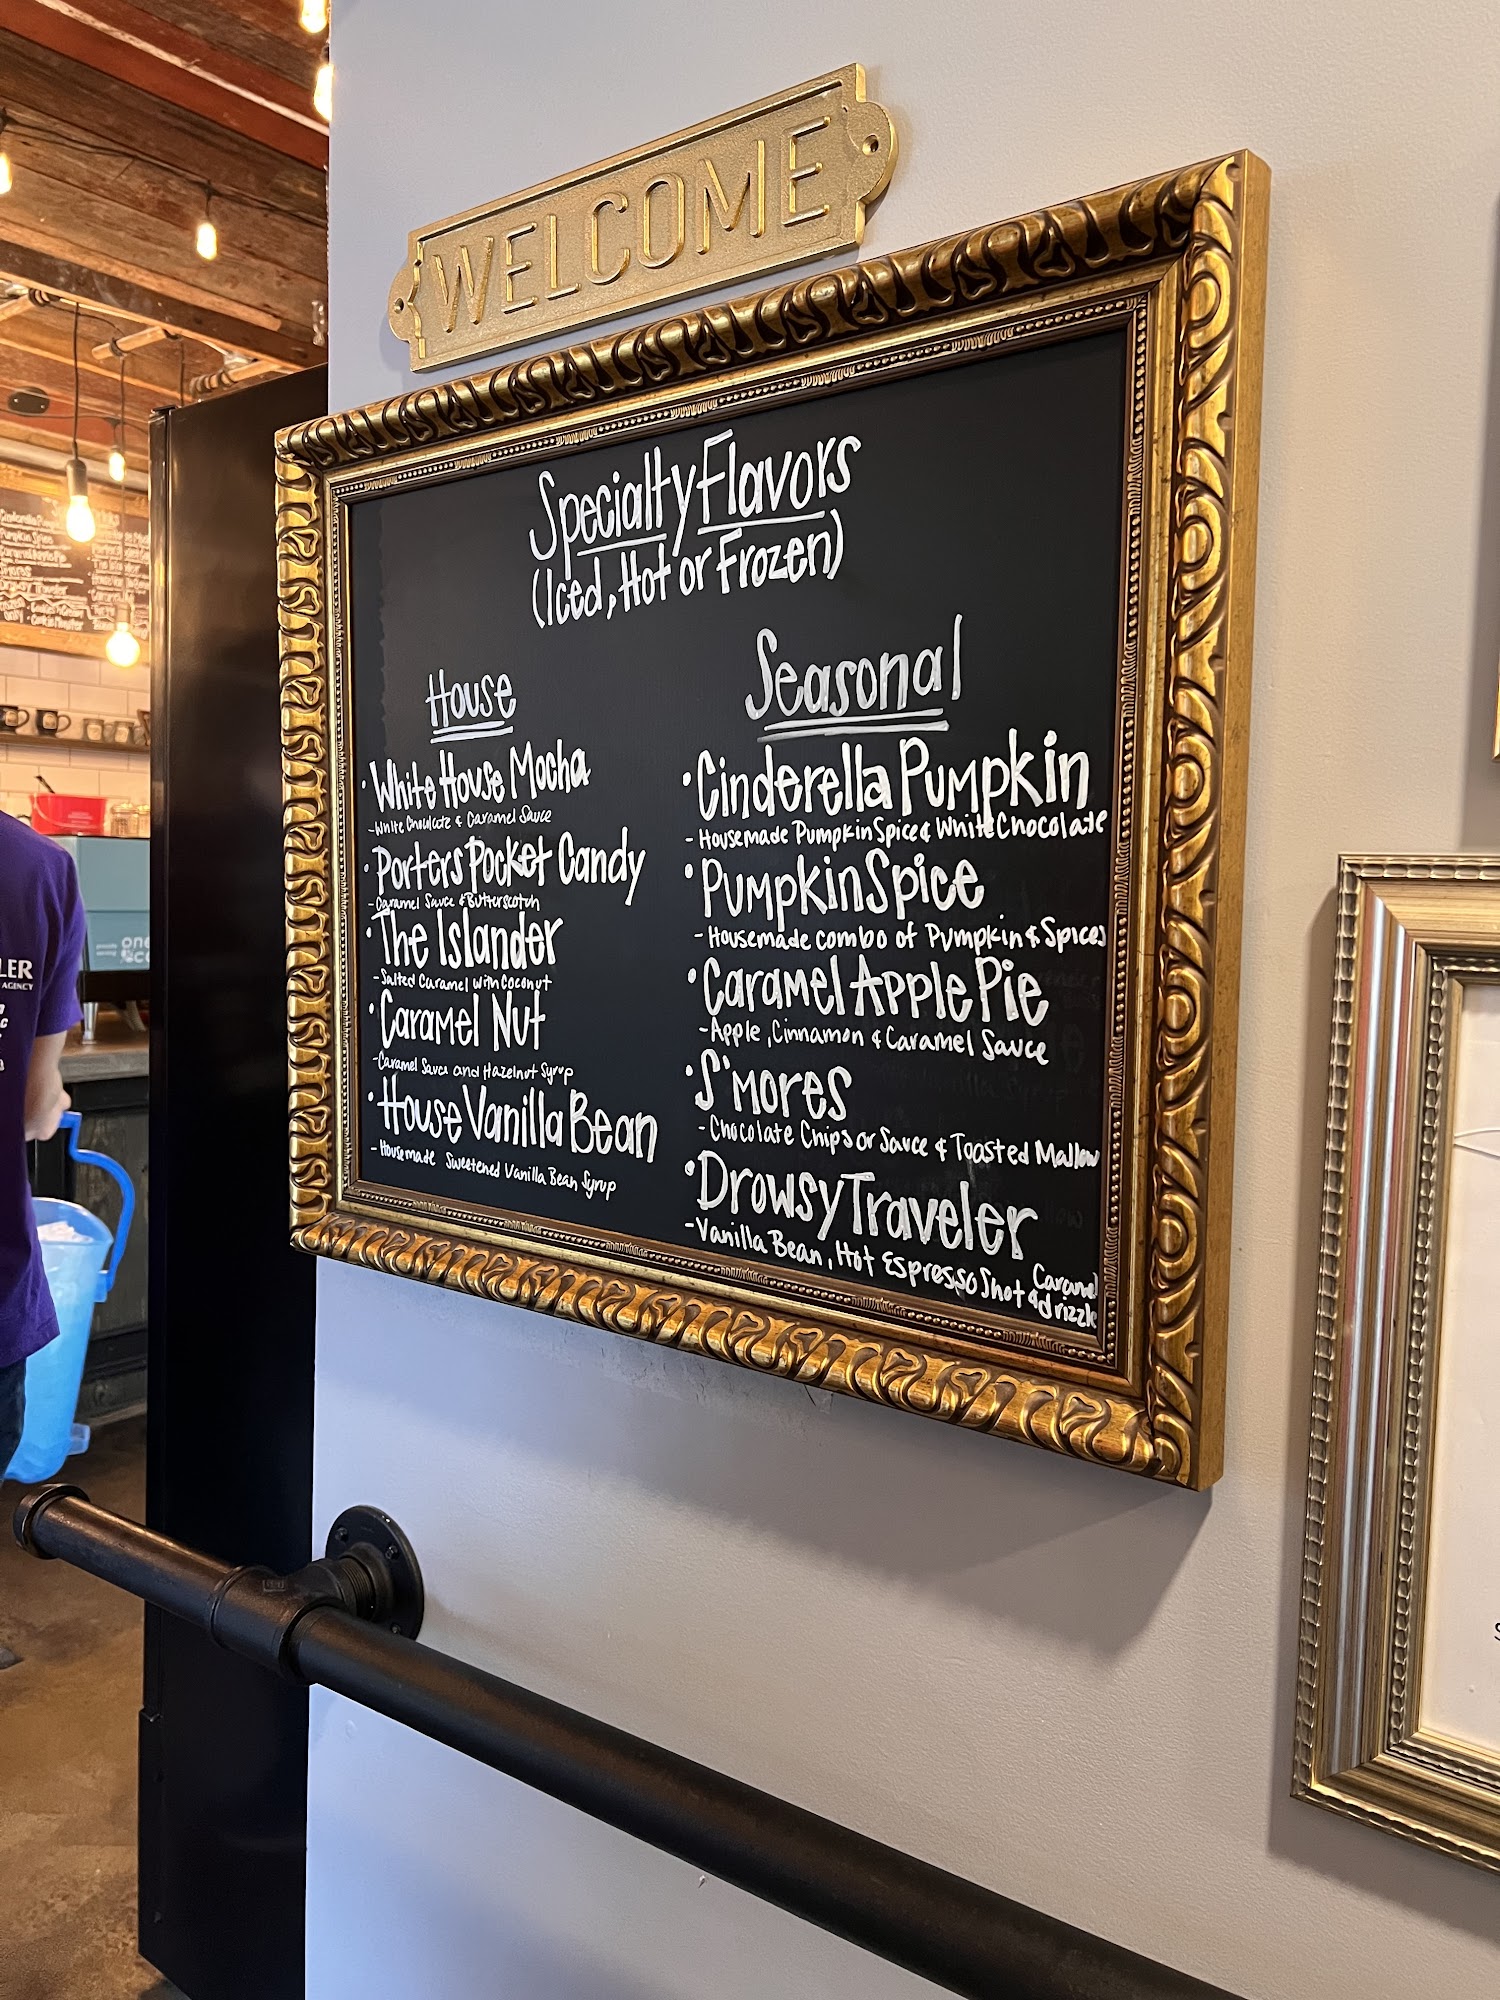 WELCOME
Specialty Flavors
(Iced, Hot or Frozen)
House
• White House Mocha
- White Chocolate & Caramel Sauce
• Porters Pocket Candy
- Caramel Sauce & Butterscotch
• The Islander
- Salted Caramel with Coconut
• Caramel Nut
- Caramel Sauce and Hazelnut Syrup
• House Vanilla Bean
- Housemade Sweetened Vanilla Bean Syrup
Seasonal
• Cinderella Pumpkin
- Housemade Pumpkin Spice & White Chocolate
• Pumpkin Spice
- Housemade combo of Pumpkin & Spices
• Caramel Apple Pie
- Apple, Cinnamon & Caramel Sauce
• S'mores
- Chocolate Chips or Sauce & Toasted Mallow
• Drowsy Traveler
- Vanilla Bean, Hot Espresso Shot & Caramel
drizzle
Cinderella
Pumpkin Spice
Caramel Apple Pie
S'mores
Drowsy Traveler
Cookie Monster
LER
AGENCY
one